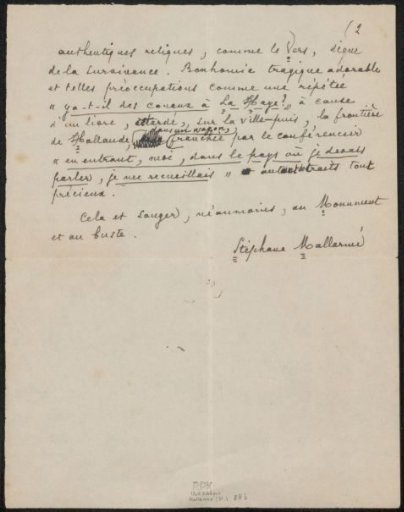 (2
authentiques reliques, comme le Vers, digne
de la survivance. Bonhomie tragique adorable
et telles préoccupations comme une répétée
" ya-t-il des canaux à La Haye? " à cause
d'un livre, attardé, sur la ville-puis, la frontière
dans un wagon,
de Hollande franchie par le conférencier
" en entrant, moi, dans le pays où je devais
parler, je me recueillais " aux traits tout
précieux.
Cela et songer, néanmoins, au Monument
et au buste.
Stéphane Mallarmé